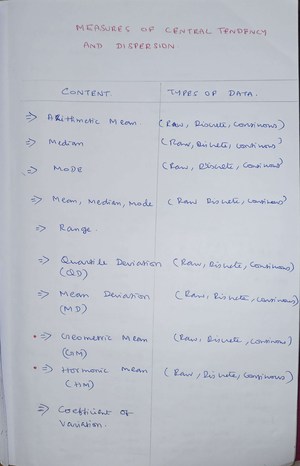 MEASURES OF CENTRAL TENDENCY
AND DISPERSION
CONTENT. TYPES OF DATA.
⇒ ARithmetic Mean (Raw, Discrete, Continous)
⇒ Median (Raw, Discrete, Continous)
⇒ MODE (Raw, Discrete, Continous)
⇒ Mean, Median, Mode (Raw Discrete, Continous)
⇒ Range.
⇒ Quartile Deviation (Raw, Discrete, Continous)
(QD)
⇒ Mean Deviation (Raw, Discrete, Continous)
(MD)
• ⇒ Geometric Mean (Raw, Discrete, Continous)
(GM)
• ⇒ Hormonic Mean (Raw, Discrete, Continous)
(HM)
⇒ Coefficient of
Variation.